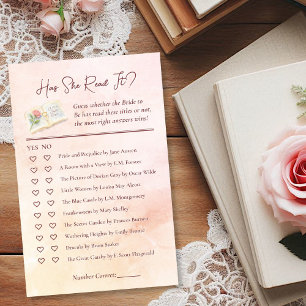 Has She Read It?
Guess whether the Bride to
Be has read these titles or not,
the most right answers wins!
YES NO
Pride and Prejudice by Jane Austen
A Room with a View by E.M. Forster
The Picture of Dorian Gray by Oscar Wilde
Little Women by Louisa May Alcott
The Blue Castle by L.M. Montgomery
Frankenstein by Mary Shelley
The Secret Garden by Frances Burnett
Wuthering Heights by Emily Brontë
Dracula by Bram Stoker
The Great Gatsby by F. Scott Fitzgerald
Number Correct: